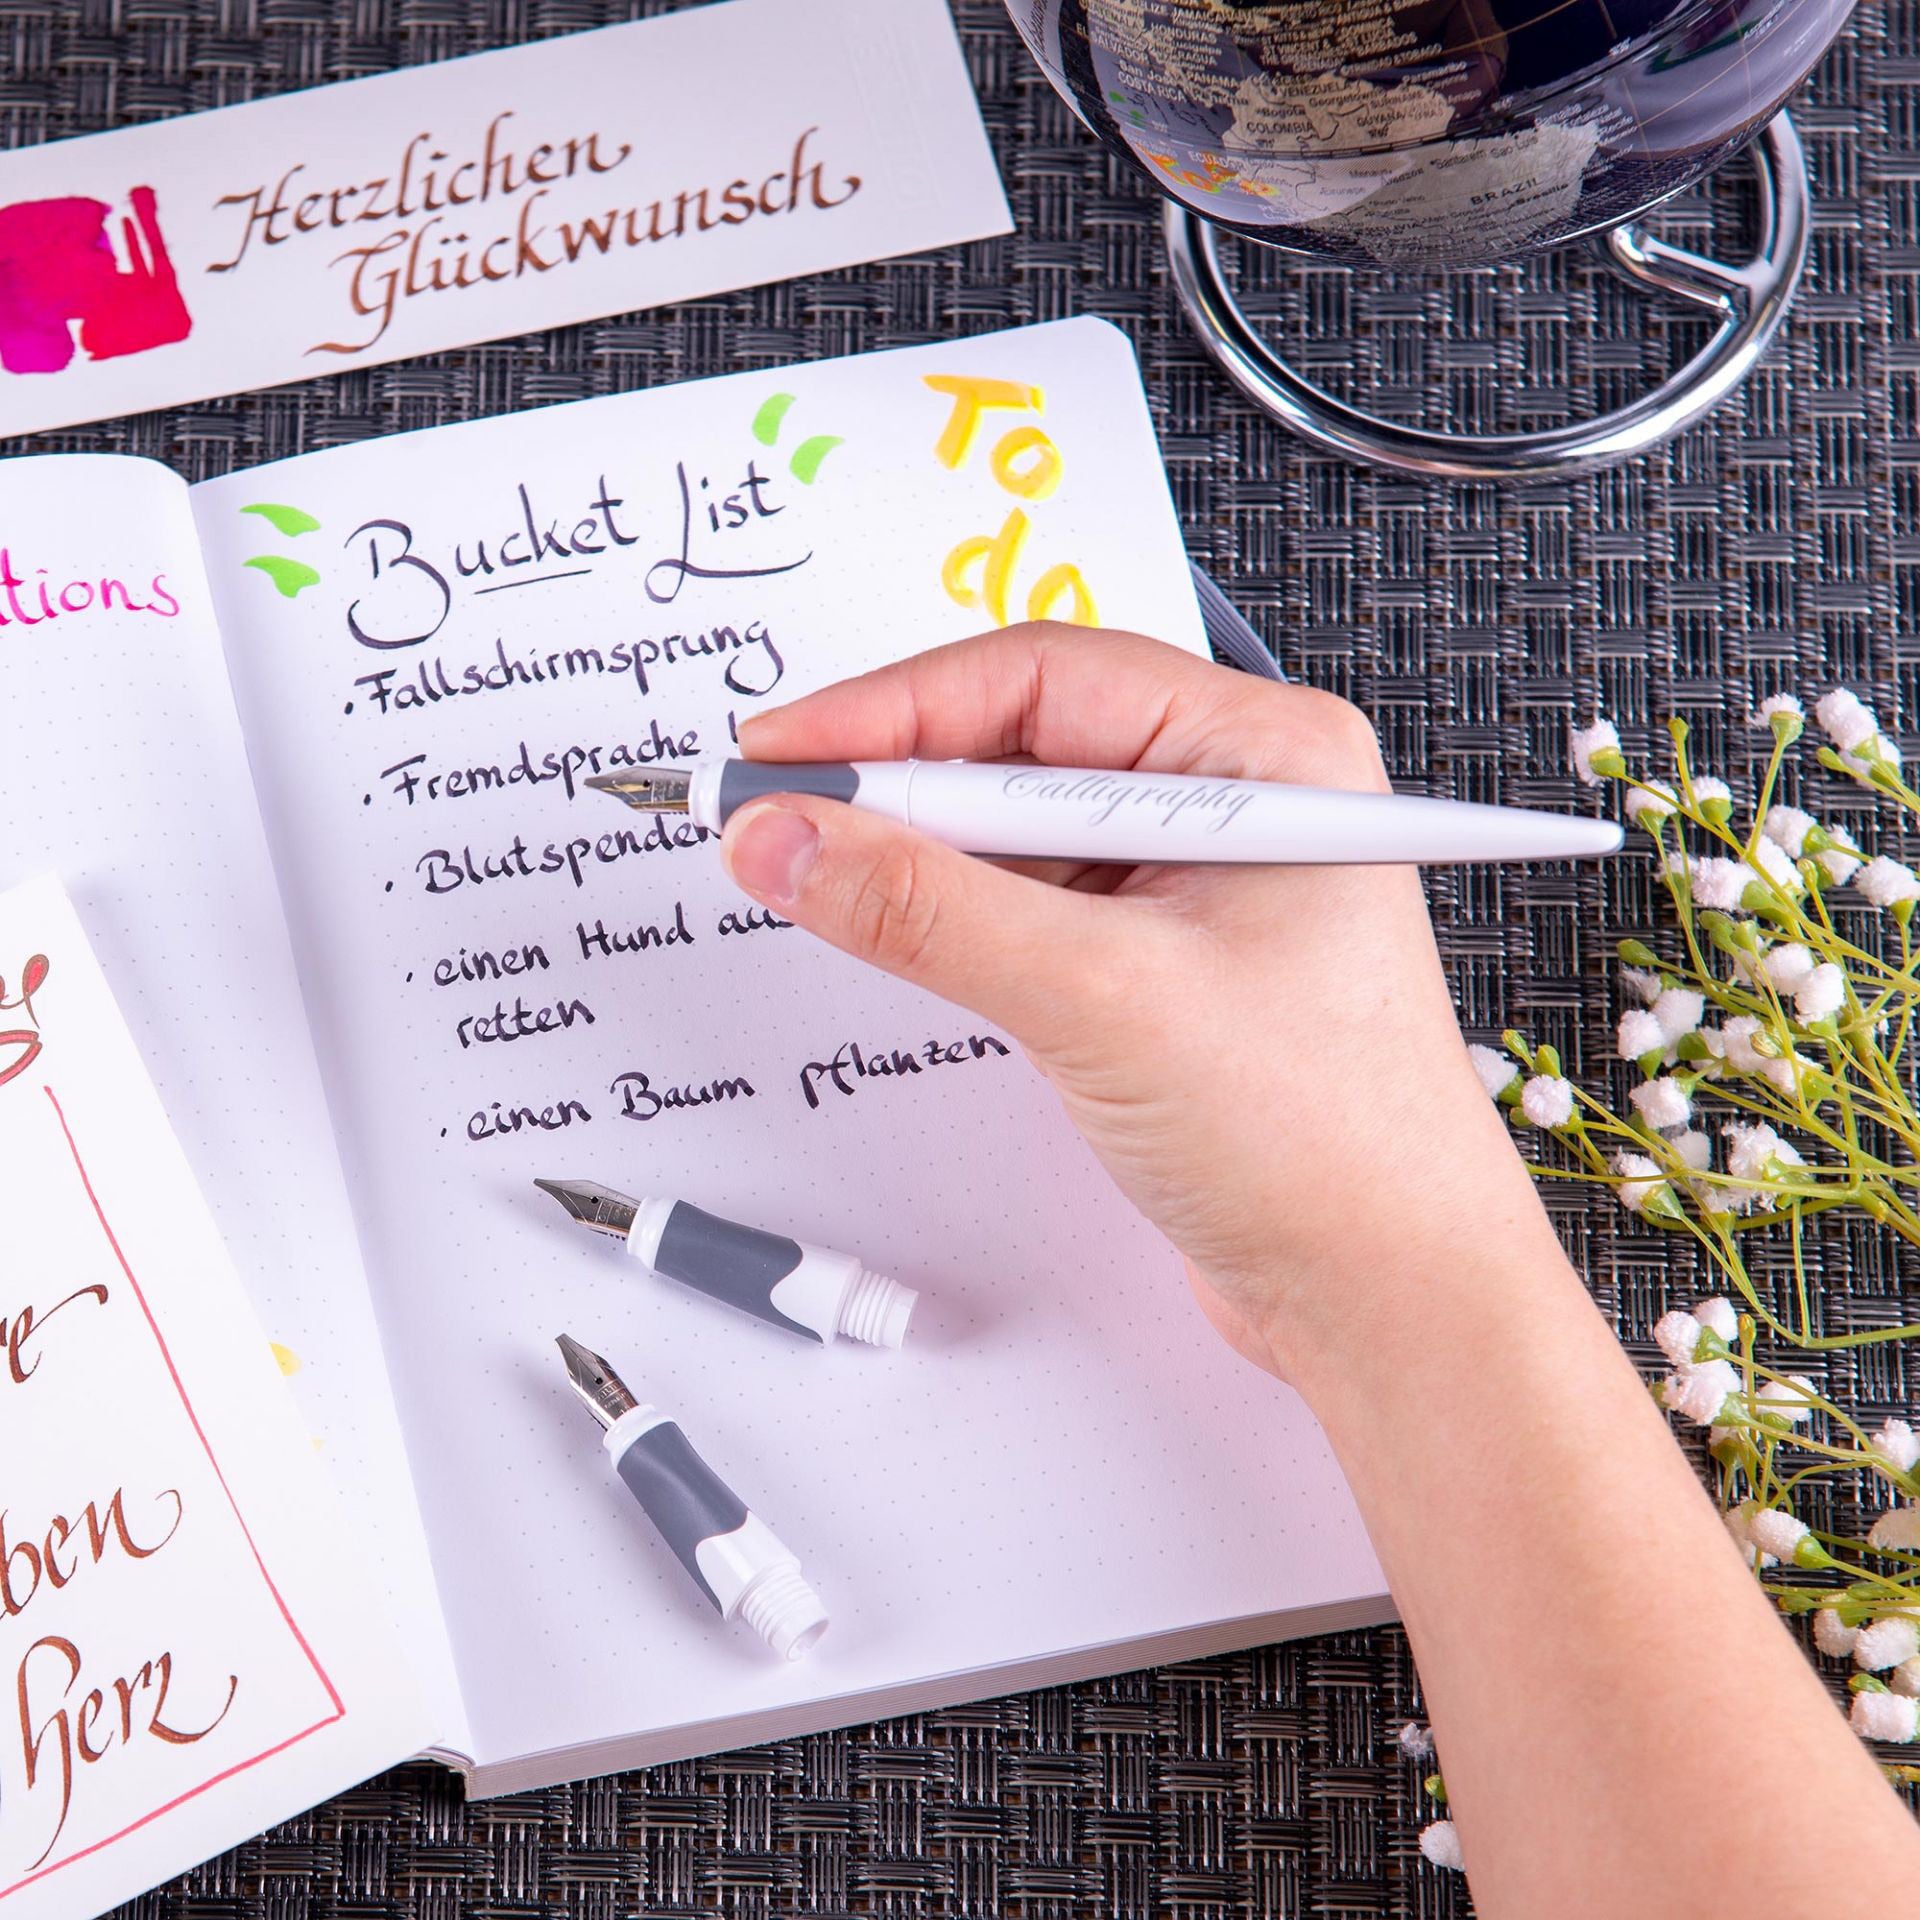 Herzlichen
Glückwunsch
Bucket List
To
do
· Fallschirmsprung
· Fremdsprache
· Blutspenden
· einen Hund
retten
· einen Baum pflanzen
Calligraphy
tions
ben
herz
COSTA RICA
PANAMA
VENEZUELA
Bogota
Georgetown
SURINAME
Paramaribo
COLOMBIA
GUYANA
ECUADOR
BRAZIL